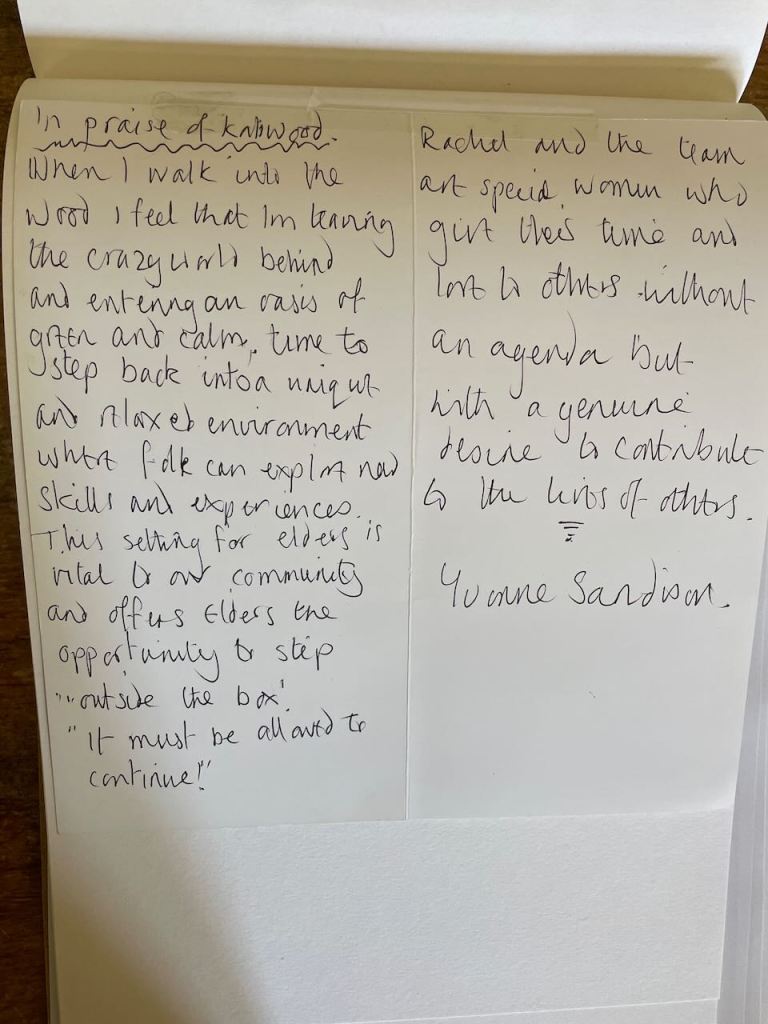 In praise of Knabwood.
When I walk into the
wood I feel that Im leaving
the crazy world behind
and entering an oasis of
green and calm, time to
step back into a unique
and relaxed environment
where folk can explore new
skills and experiences.
This setting for elders is
vital to our community
and offers Elders the
opportunity to step
"outside the box'.
"It must be allowed to
continue!"
Rachel and the team
are special women who
give their time and
love to others without
an agenda but
with a genuine
desire to contribute
to the lives of others.
Yvonne Sandison.